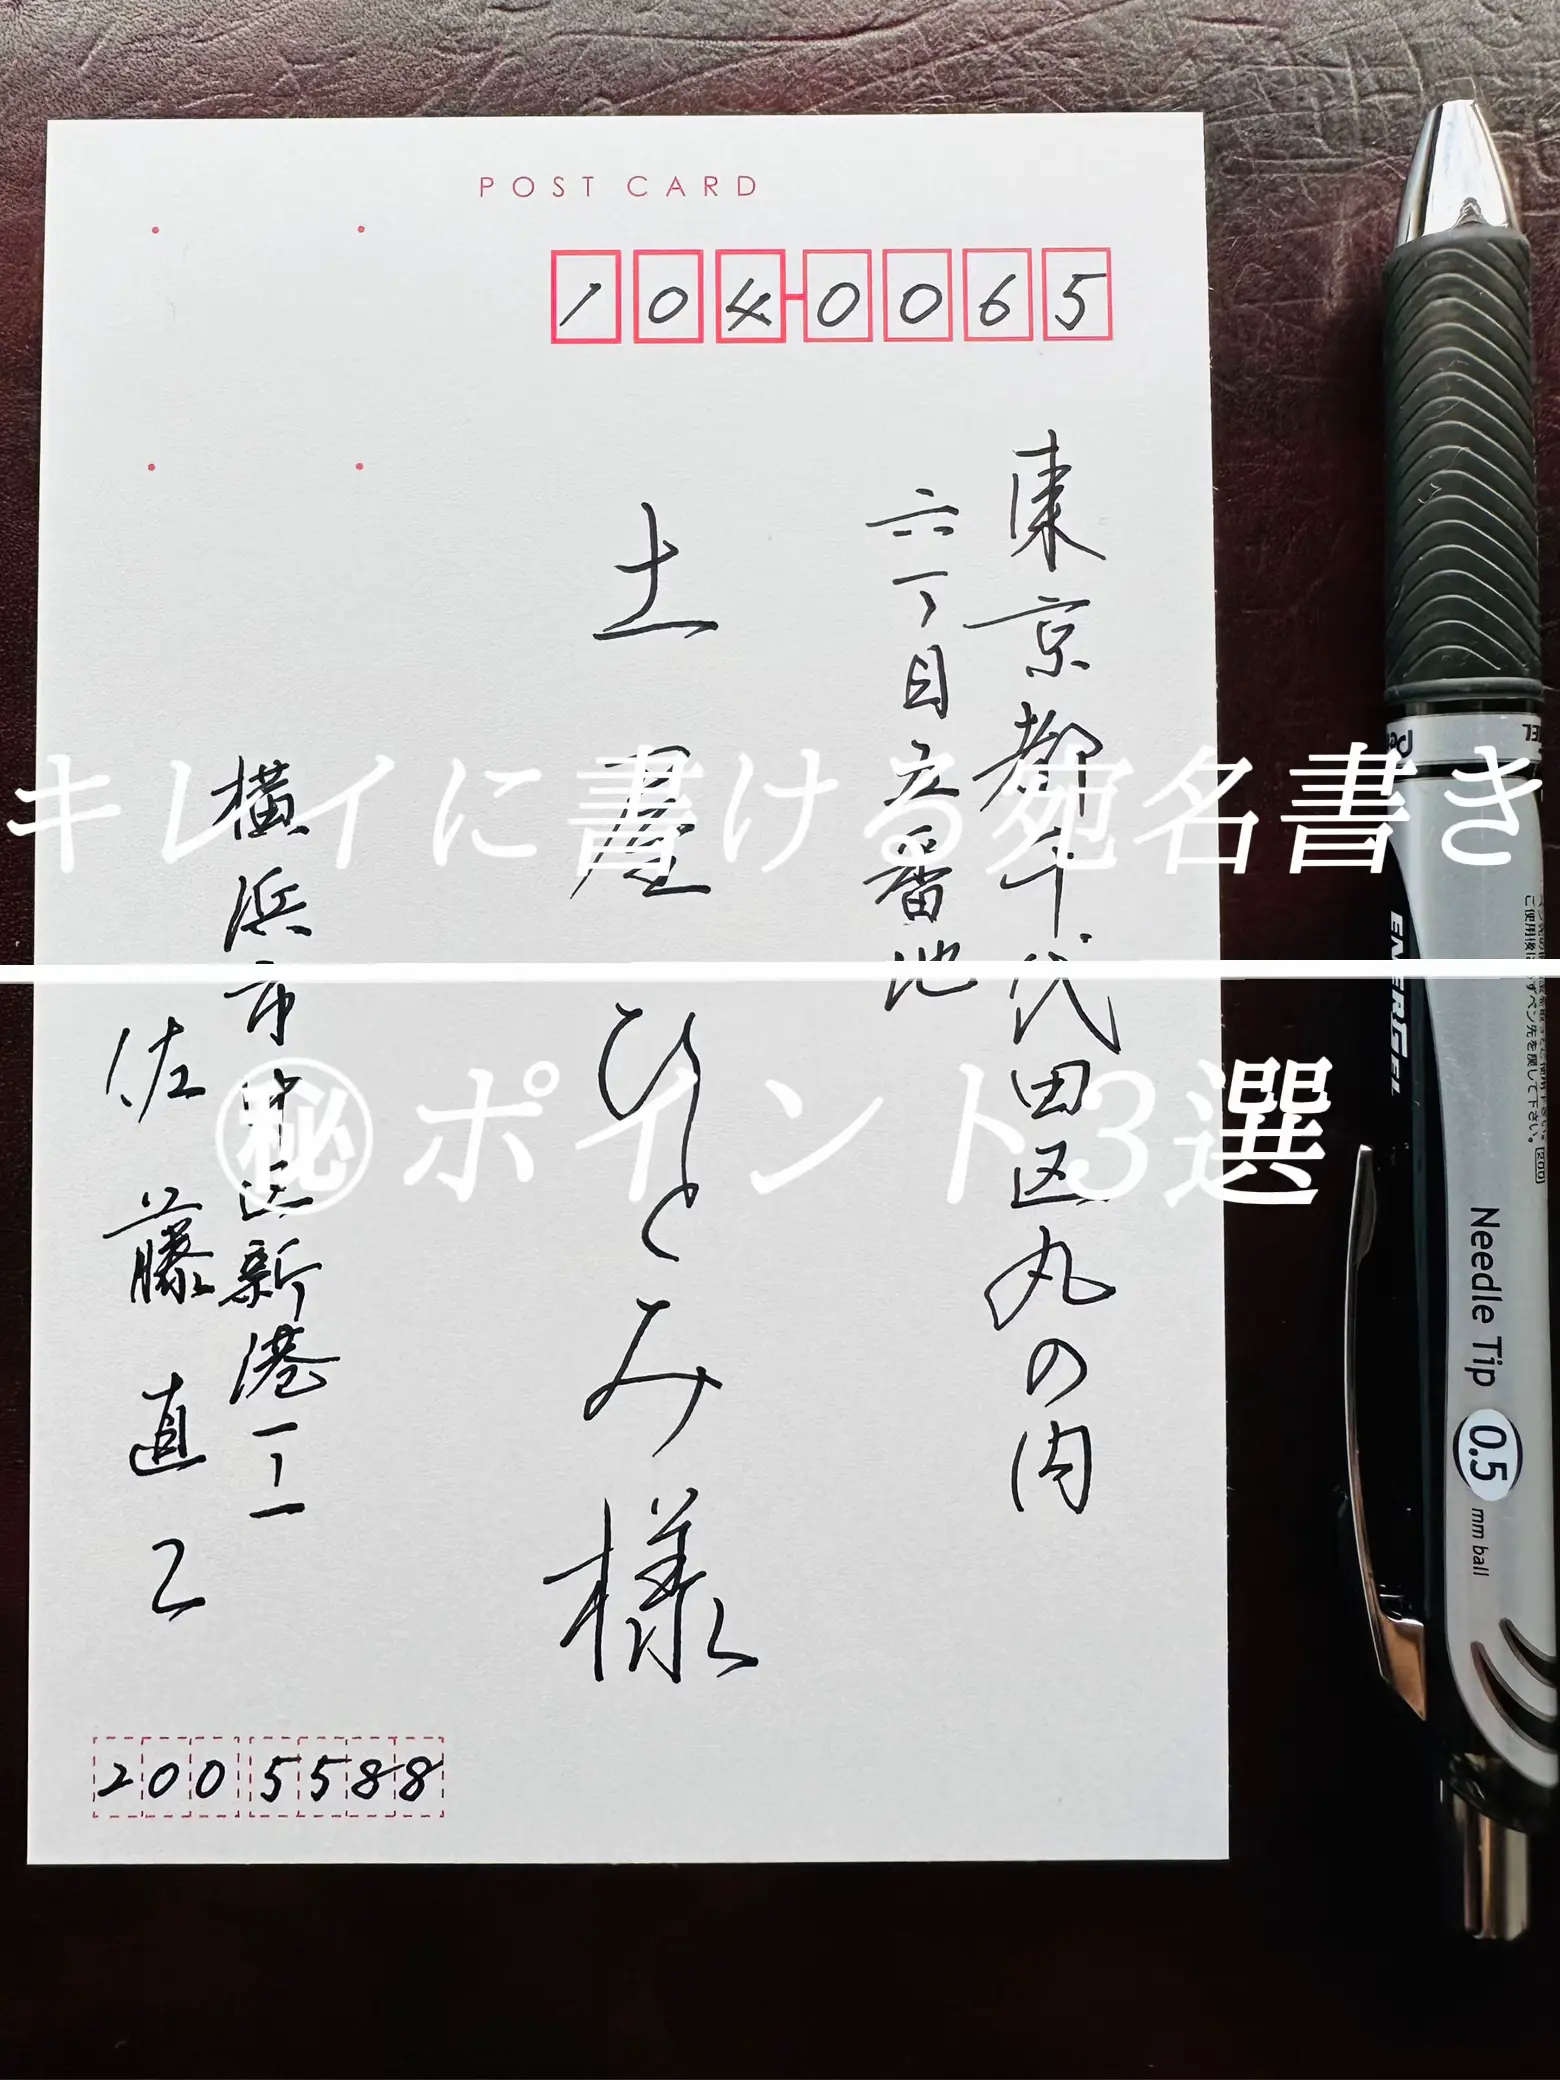 POST CARD
1040065
東京都千代田区丸の内
六丁目五番地
土屋ひとみ様
横浜市中区新港一丁一
佐藤直乙
2005588
キレイに書ける宛名書き
㊙ポイント3選
ENERGEL
Needle Tip 0.5 mm ball